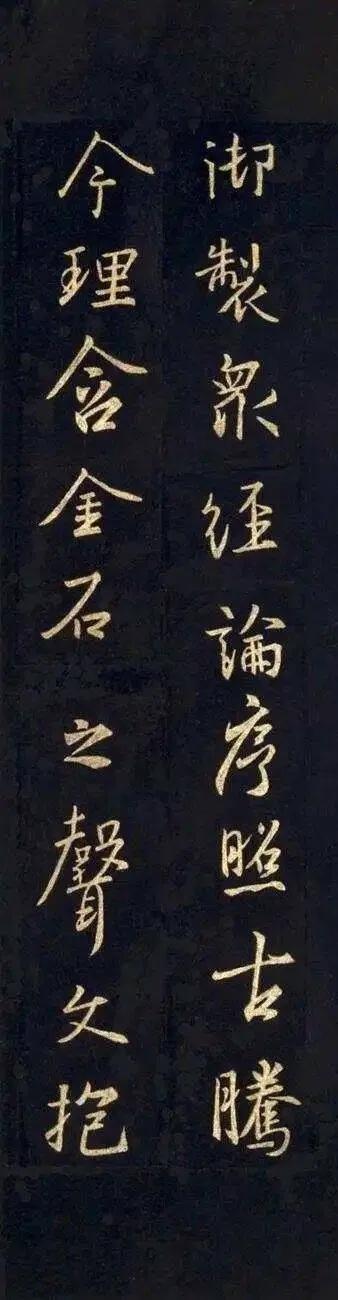 御製眾經論序照古騰
今理含金石之聲文抱